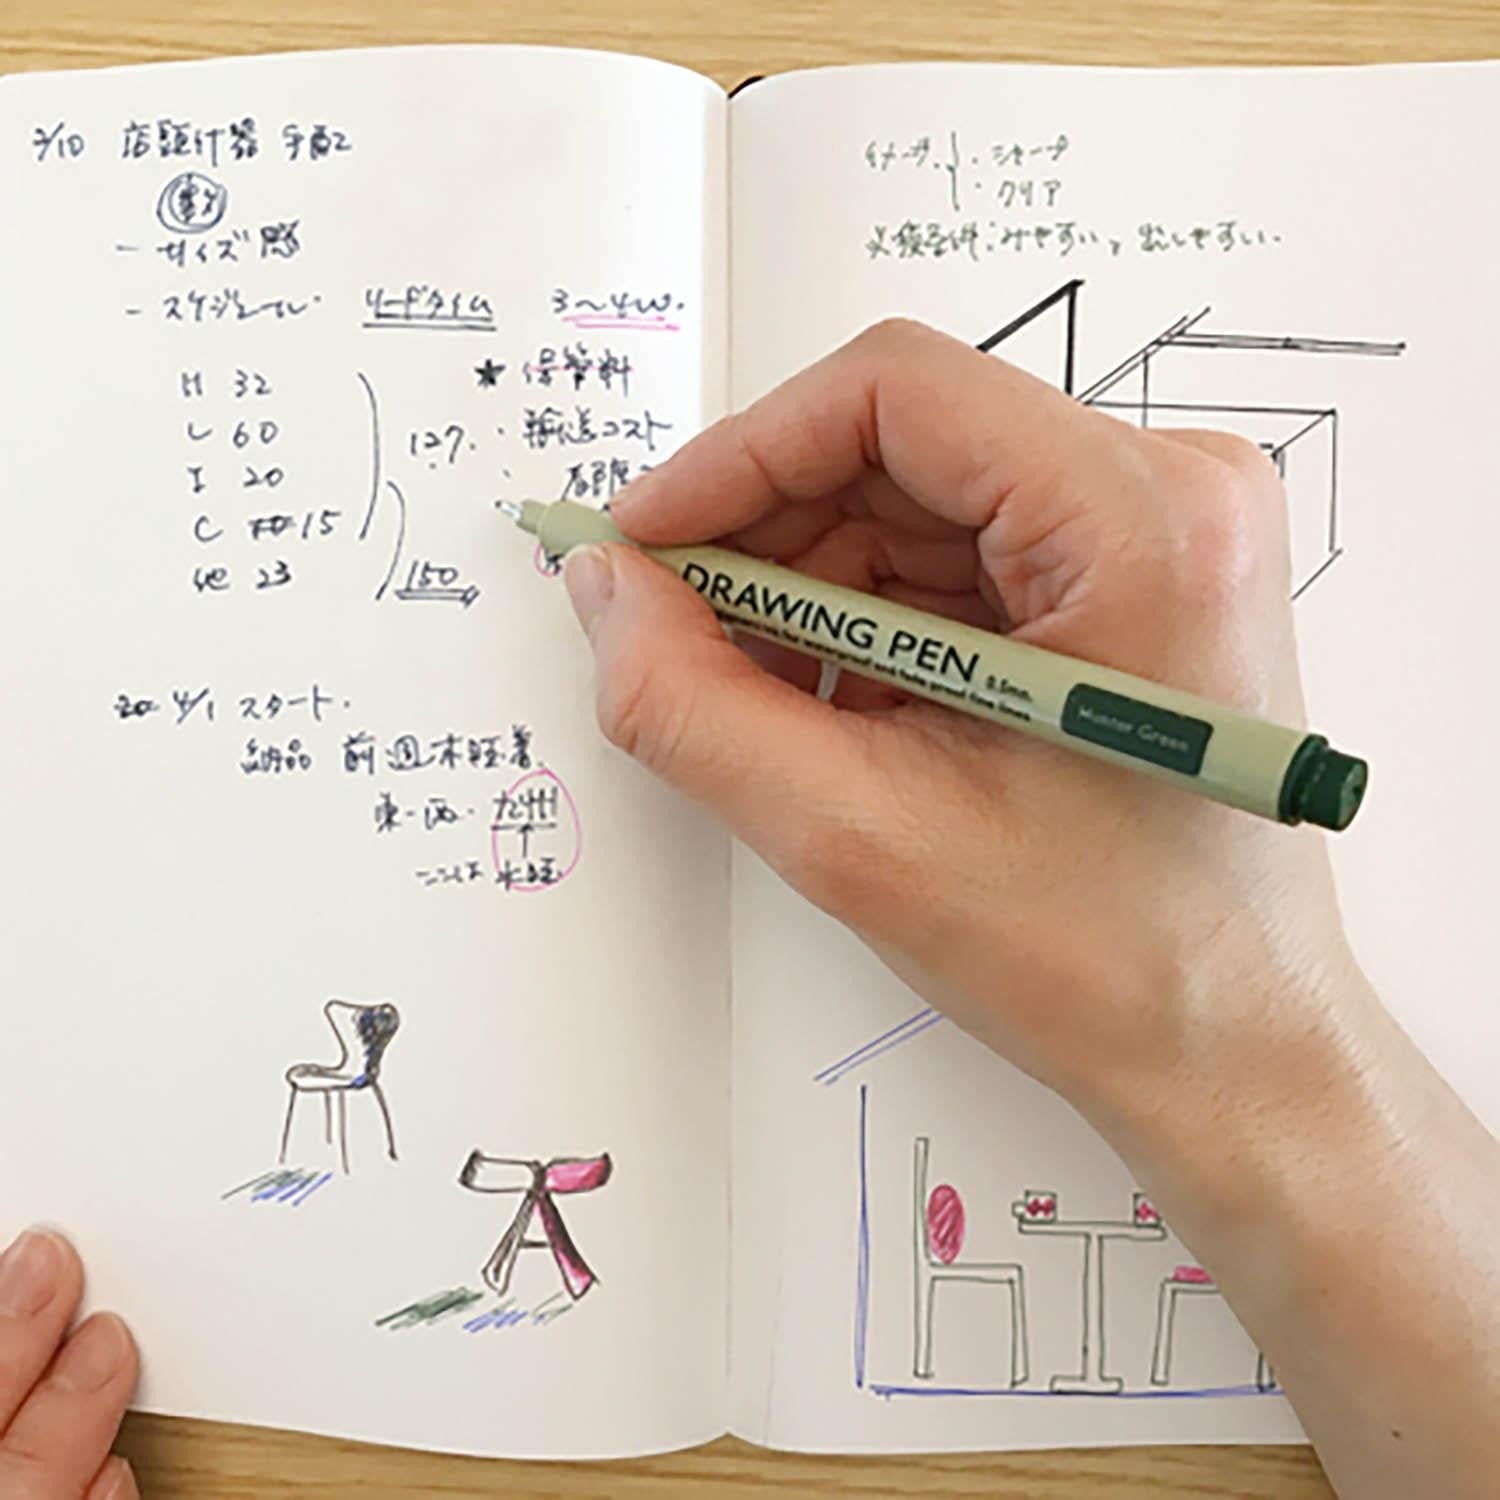 2/10 店頭什器 手配
数
- サイズ感
- スケジュール リードタイム 3〜4w.
H 32
L 60
I 20
C 15
他 23
127.
150
★ 保管料
・輸送コスト
4/1 スタート.
納品 前週木曜着.
東・西・九州
↑
ここは水曜.
イメージ.・シャープ
・クリア
必須条件:みやすい,出しやすい.
DRAWING PEN 0.5mm.
Hunter Green